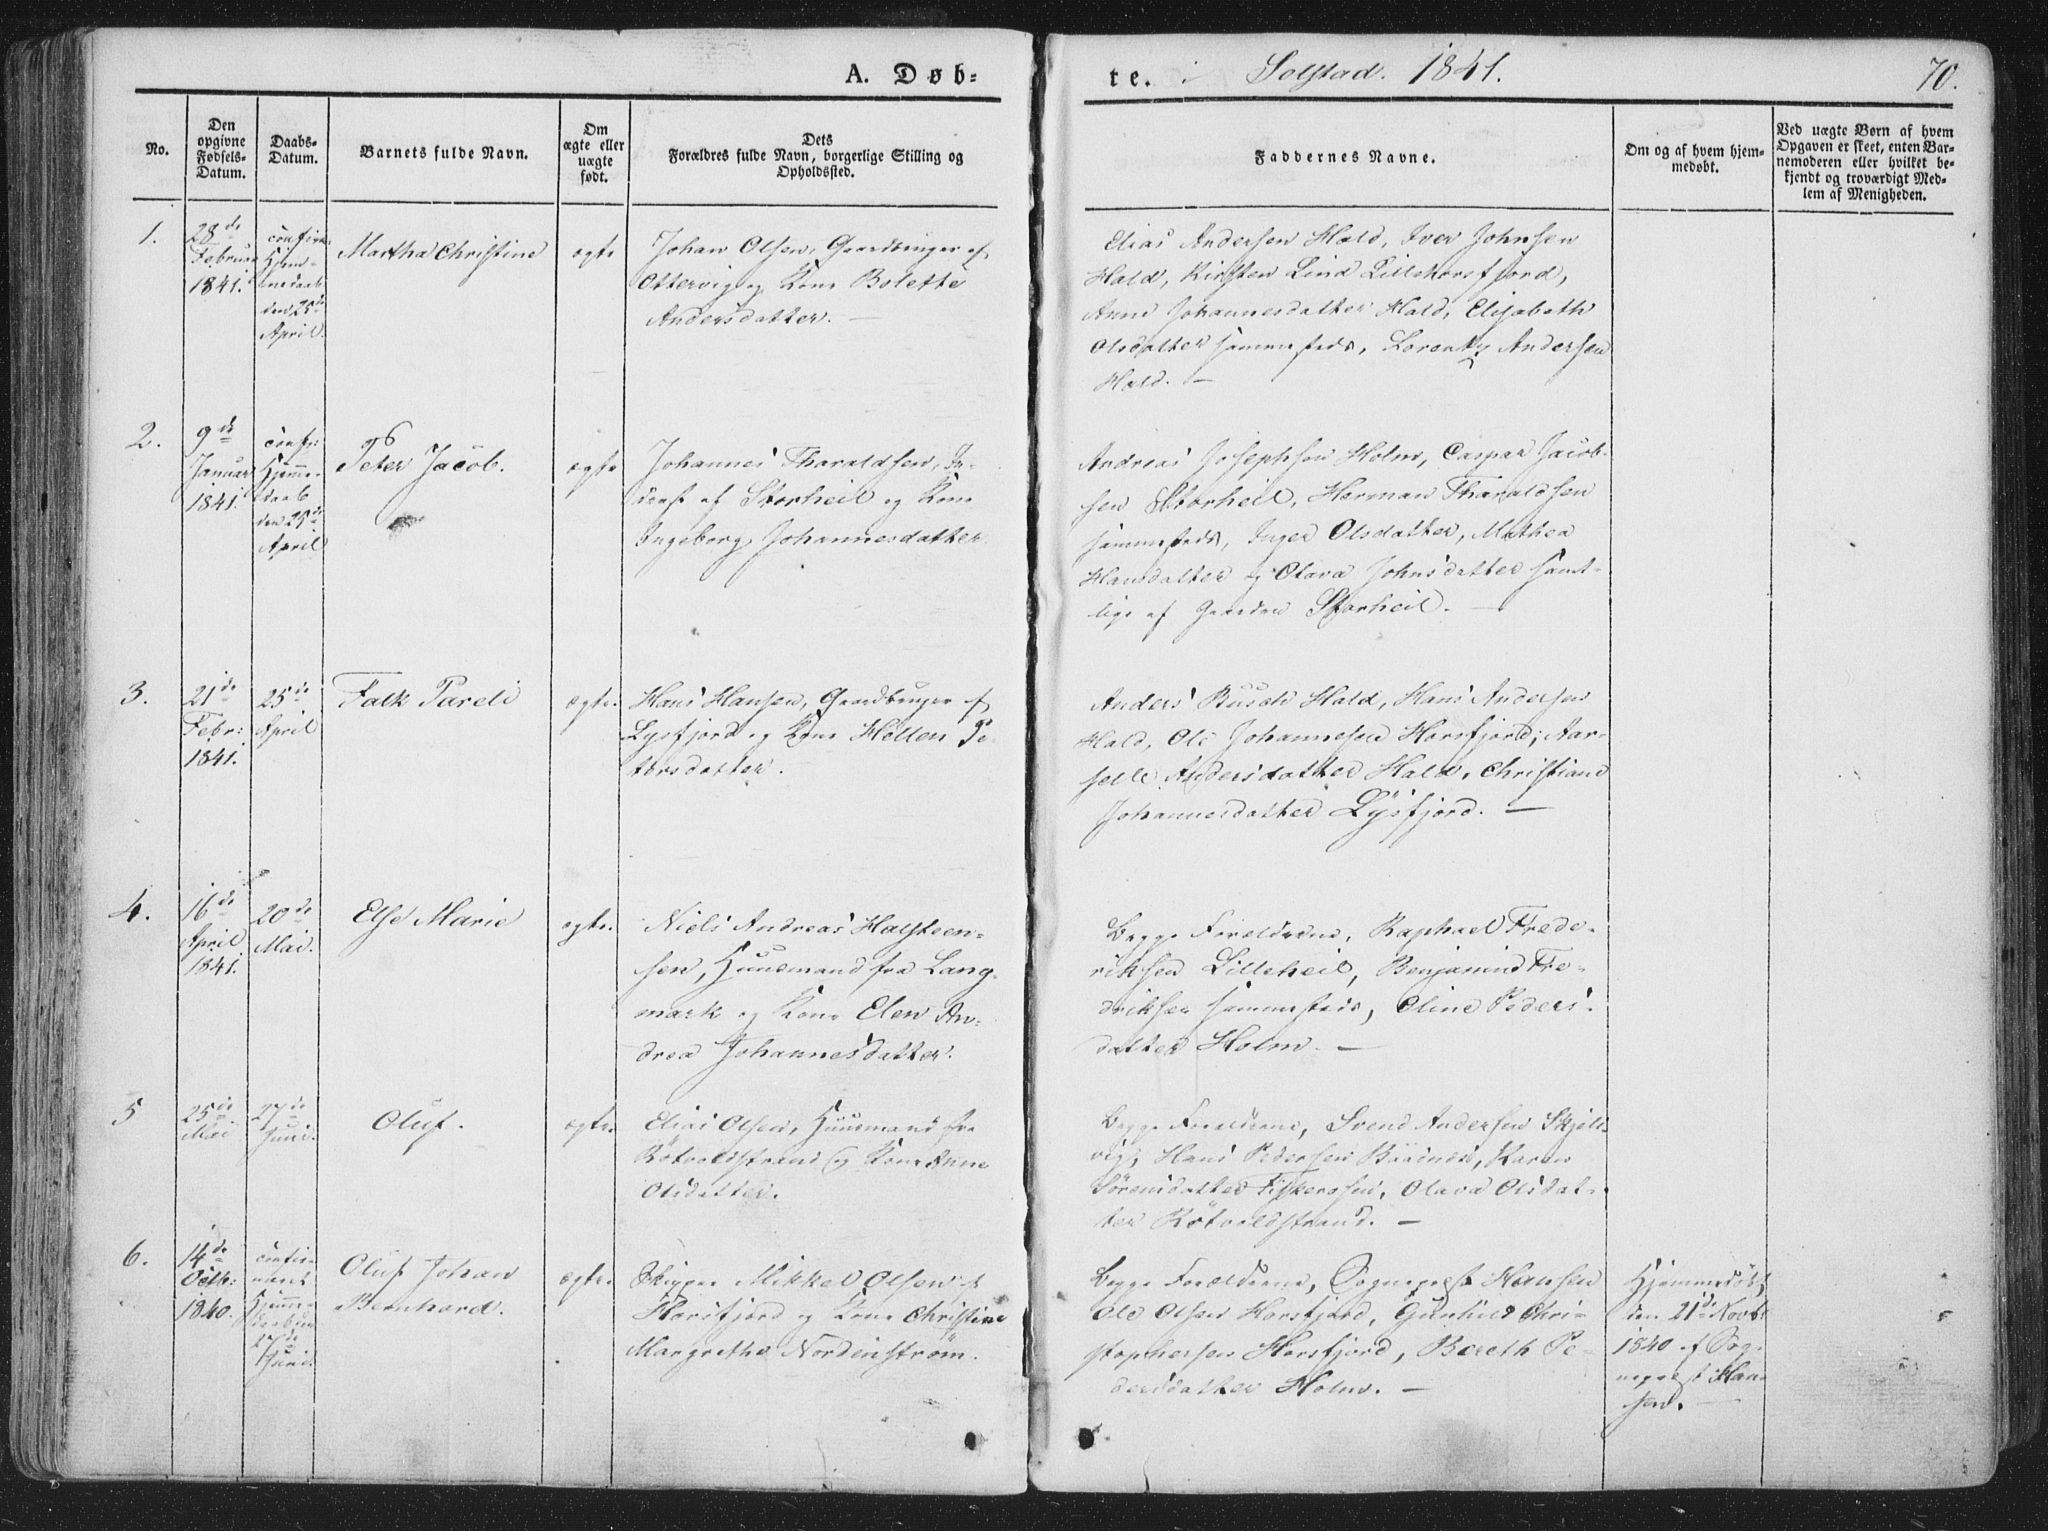 A. Døb-
te. i Solstad. 1841. 70.
No.
Den
opgivne
Fødsels-
Datum.
Daabs-
Datum.
Barnets fulde Navn.
Om
ægte eller
uægte
født.
Dets
Forældres fulde Navn, borgerlige Stilling og
Opholdssted.
Faddernes Navne.
Om og af hvem hjem-
medøbt.
Ved uægte Børn af hvem
Opgaven er skeet, enten Bar-
nemoderen eller hvilket be-
kjendt og troværdigt Med-
lem af Menigheden.
1.
28de
Februar
1841.
Hjem-
medaab
den 25de
April.
Martha Christine
ægte
Johan Olsen, Gaardbruger af
Ottervig og Kone Bolette
Andersdatter. —
Elias Andersen Hald, Iver Johnsen
Hald, Kirsten Lind Lillehorsfjord,
Anne Johannesdatter Hald, Elisabeth
Olsdatter sammesteds, Lorentz Andersen
Hald. —
2.
9de
Januar
1841.
conf:
Hjemme-
daab
den 25de
April
Peter Jacob.
ægte
Johannes Tharaldsen, In-
derst af Storheil og Kone
Ingeborg Johannesdatter.
Andreas Josephsen Holm, Caspar Jacob-
sen Storheil, Herman Tharaldsen
sammesteds, Inger Olsdatter, Mathea
Hansdatter og Olava Johnsdatter samt-
lige af Gaarden Storheil. —
3.
21de
Febr:
1841.
25de
April
Falk Pareli
ægte.
Hans Hansen, Gaardbruger af
Lysfjord og Kone Hellen Pe-
tersdatter.
Anders Busch Hald, Hans Andersen
Hald, Ole Johannesen Horsfjord, Aar-
selle Andersdatter Hald, Christiane
Johannesdatter Lysfjord. —
4.
16de
April
1841.
20de
Mai.
Else Marie
ægte.
Niels Andreas Halsteen-
sen, Huusmand fra Lang-
mark og Kone Elen An-
drea Johannesdatter.
Begge Forældrene, Raphael Frede-
riksen Lilleheil, Benjamin Fre-
driksen sammesteds, Eline Peders-
datter Holm. —
5
25de
Mai
27de
Juni.
Oluf.
ægte.
Elias Olsen, Huusmand fra
Røtvoldstrand og Kone Anne
Olsdatter.
Begge Forældrene, Svend Andersen Skjels-
vig, Hans Pedersen, Karen
Sörensdatter, Olava Olsdat-
ter Røtvoldstrand. —
6.
14de
Octb:
1840.
confir-
meret
Hjemme-
daaben
27de
Juni.
Oluf Johan
Bernhard.
ægte.
Skipper Mikkel Olsen af
Horsfjord og Kone Christine
Margrethe Nordenström.
Begge Forældrene, Sogneprest Hansen
Ole Olsen Horsfjord, Gunhild Chri-
stophersen Horsfjord, Bereth Pe-
dersdatter Holm. —
Hjemmedøbt
den 21de Novb:
1840 af Sog-
neprest Han-
sen. —